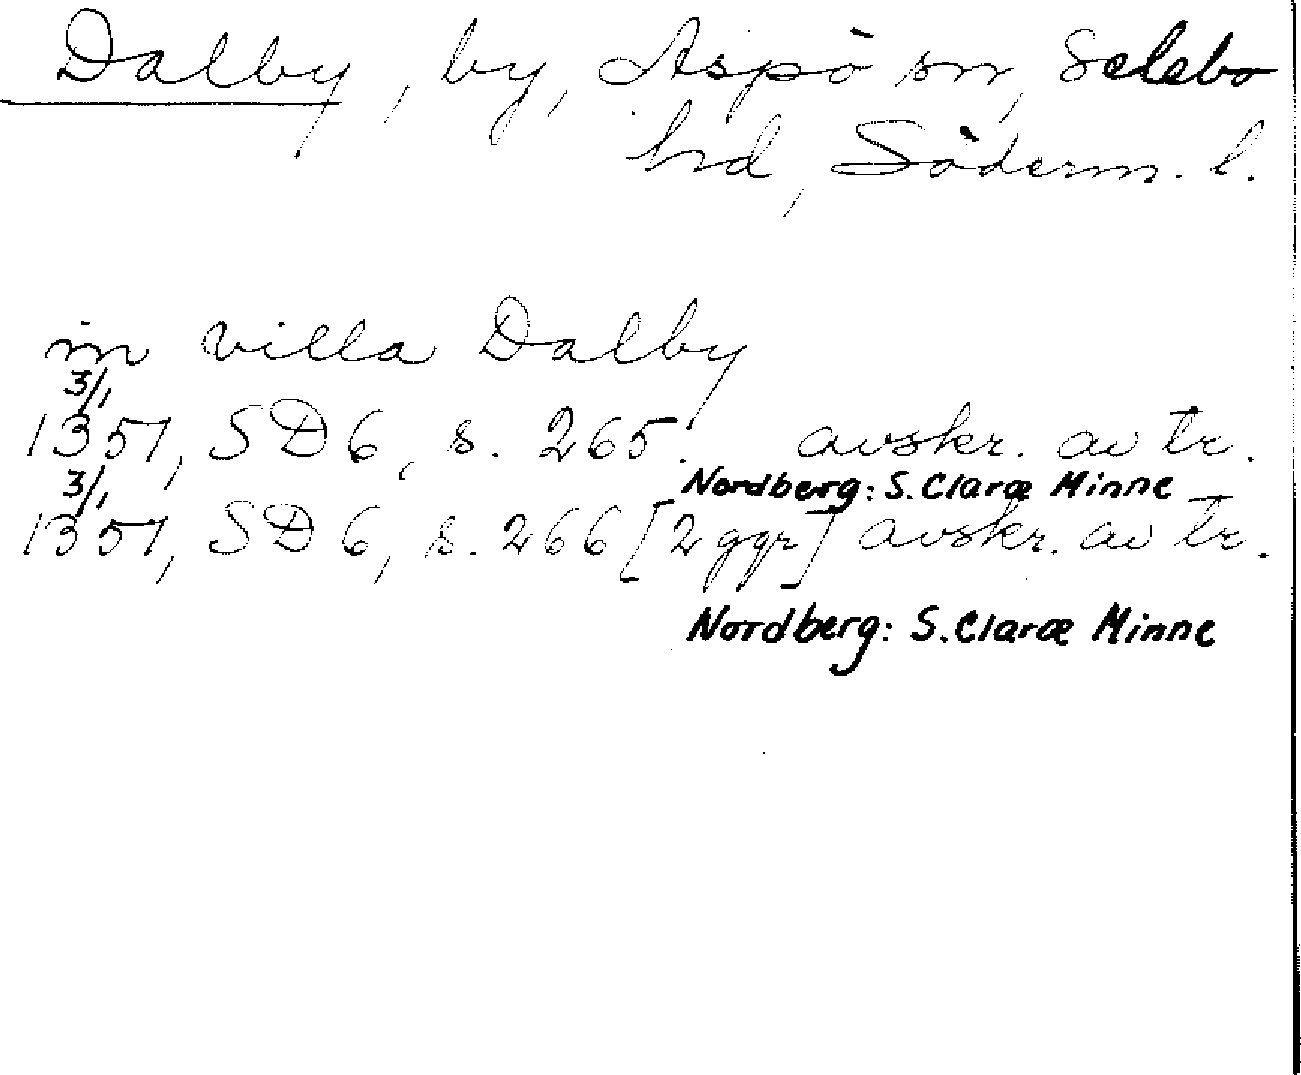 Dalby, by, Aspö sn, Selebo
hd, Söderm. l.
in villa Dalby
3/1
1351, SD 6, s. 265. avskr. av tr.
Nordberg: S. Claræ Minne
3/1
1351, SD 6, s. 266 [2 ggr] avskr. av tr.
Nordberg: S. Claræ Minne